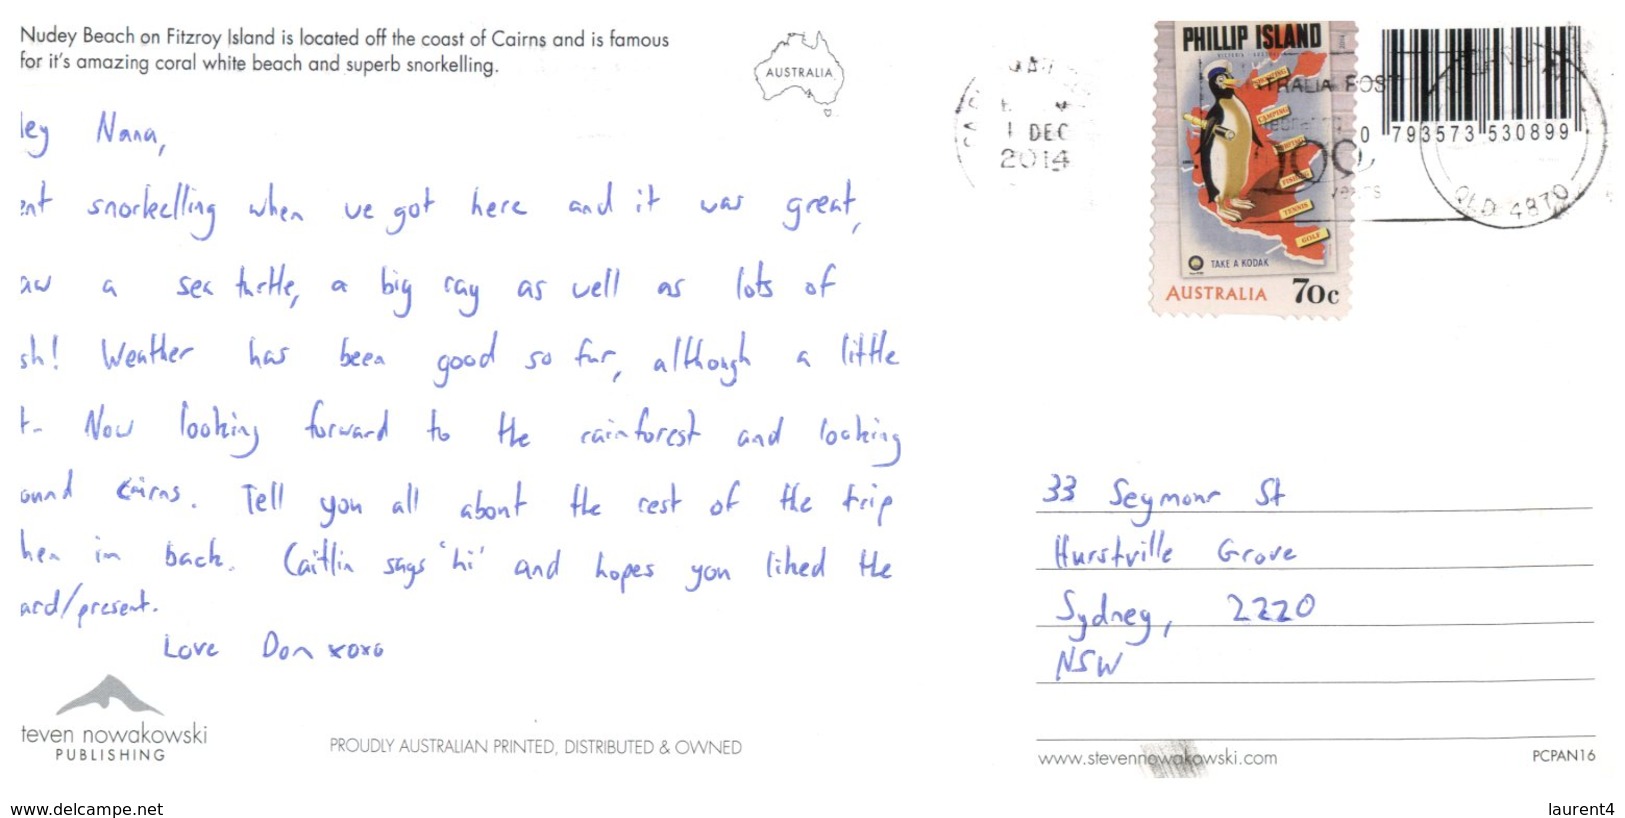 Nudey Beach on Fitzroy Island is located off the coast of Cairns and is famous
for it's amazing coral white beach and superb snorkelling.
AUSTRALIA
ley Nana,
ent snorkelling when we got here and it was great,
aw a sea turtle, a big ray as well as lots of
sh! Weather has been good so far, although a little
t. Now looking forward to the rainforest and looking
ound Cairns. Tell you all about the rest of the trip
hen im back. Caitlin says 'hi' and hopes you liked the
ard/present.
Love Dan xoxo
teven nowakowski
PUBLISHING
PROUDLY AUSTRALIAN PRINTED, DISTRIBUTED & OWNED
1 DEC
2014
PHILLIP ISLAND
CAMPING
FISHING
TENNIS
GOLF
TAKE A KODAK
AUSTRALIA 70c
TRALIA POST
100
years
0 793573 530899
QLD 4870
33 Seymour St
Hurstville Grove
Sydney, 2220
NSW
www.stevennowakowski.com
PCPAN16
www.delcampe.net
laurent4